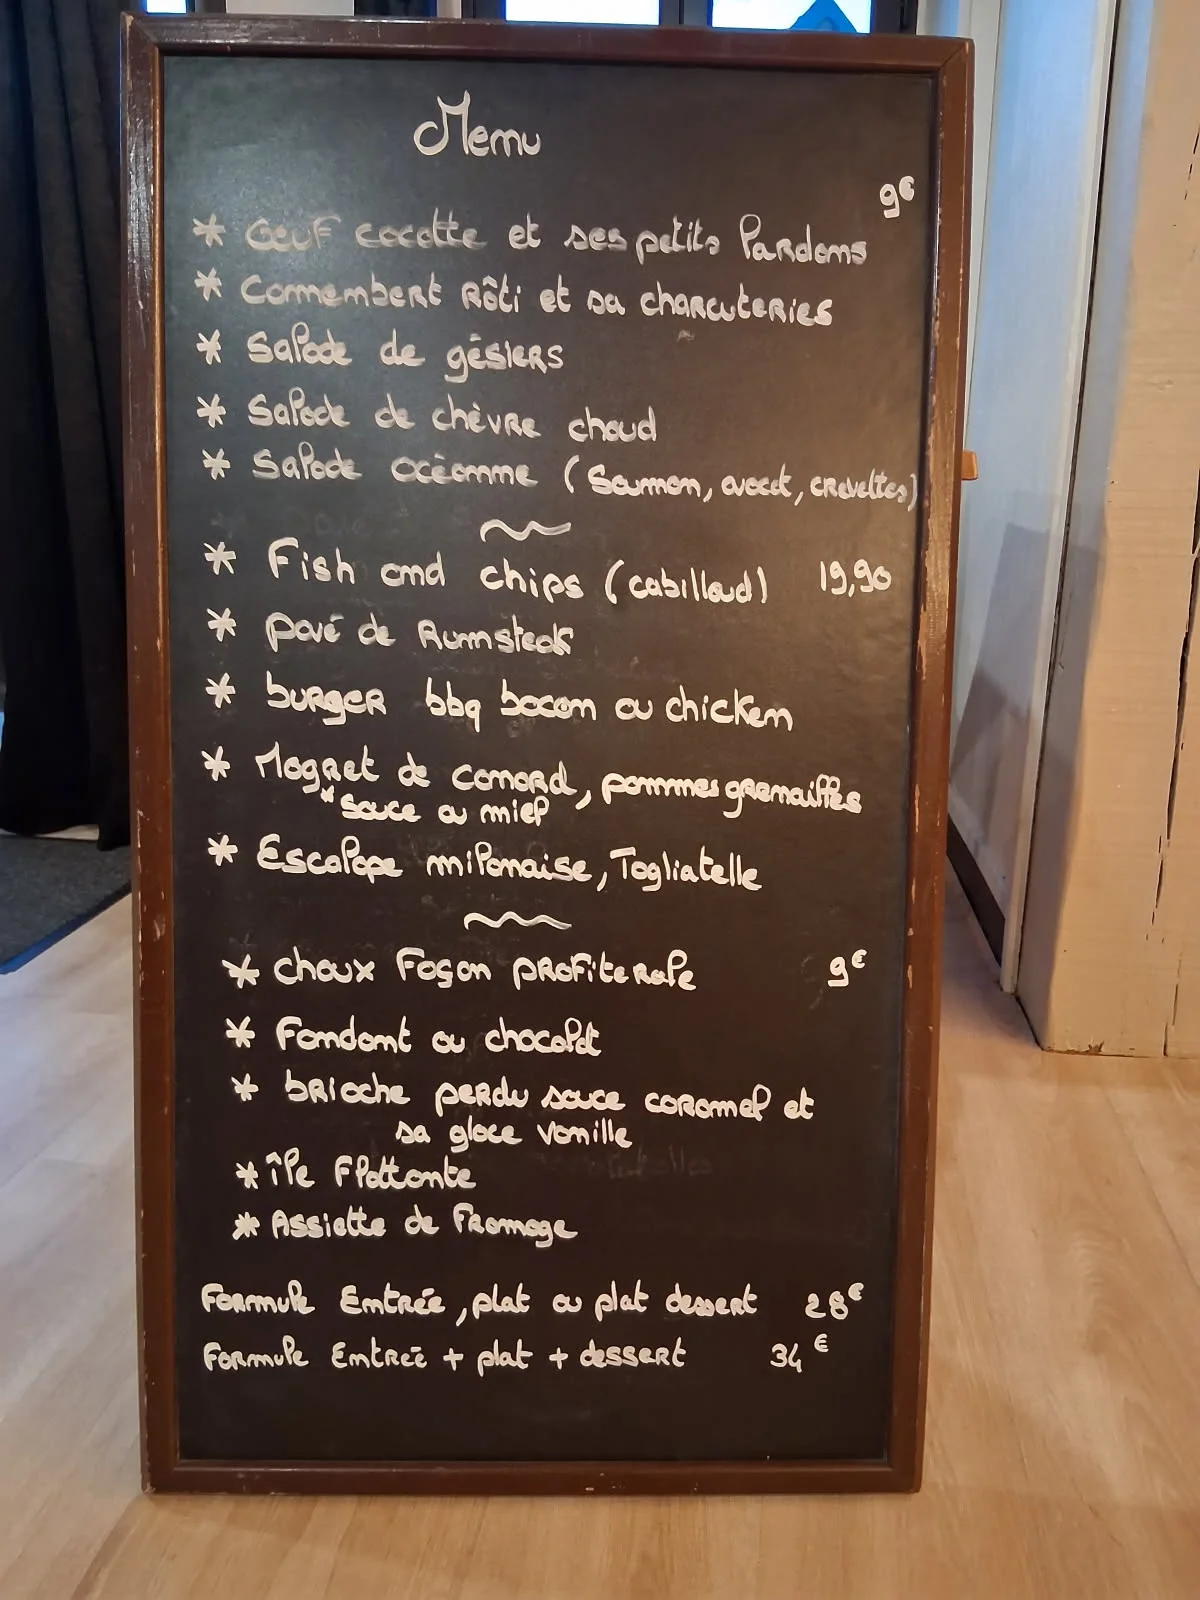 Menu
9€
* Oeuf cocotte et ses petits lardons
* Camembert rôti et sa charcuteries
* Salade de gésiers
* Salade de chèvre chaud
* Salade océanne (Saumon, avocat, crevettes)
* Fish and chips (cabillaud) 19,90
* pavé de Rumsteak
* burger bbq bacon ou chicken
* Magret de canard, pommes grenailles
* sauce ou miel
* Escalope milanaise, Tagliatelle
* choux Façon profiterole 9€
* Fondant au chocolat
* brioche perdu sauce caramel et
sa glace vanille
* île Flottante
* Assiette de Fromage
Formule Entrée, plat ou plat dessert 28€
Formule Entrée + plat + dessert 34€